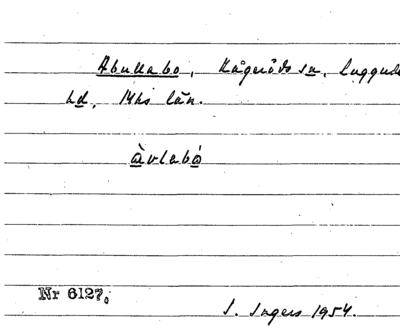 Abullabo, Kågeröds sn, Luggude
hd, Mhs län.
àvlabò
Nr 6127.
I. Ingers 1954.